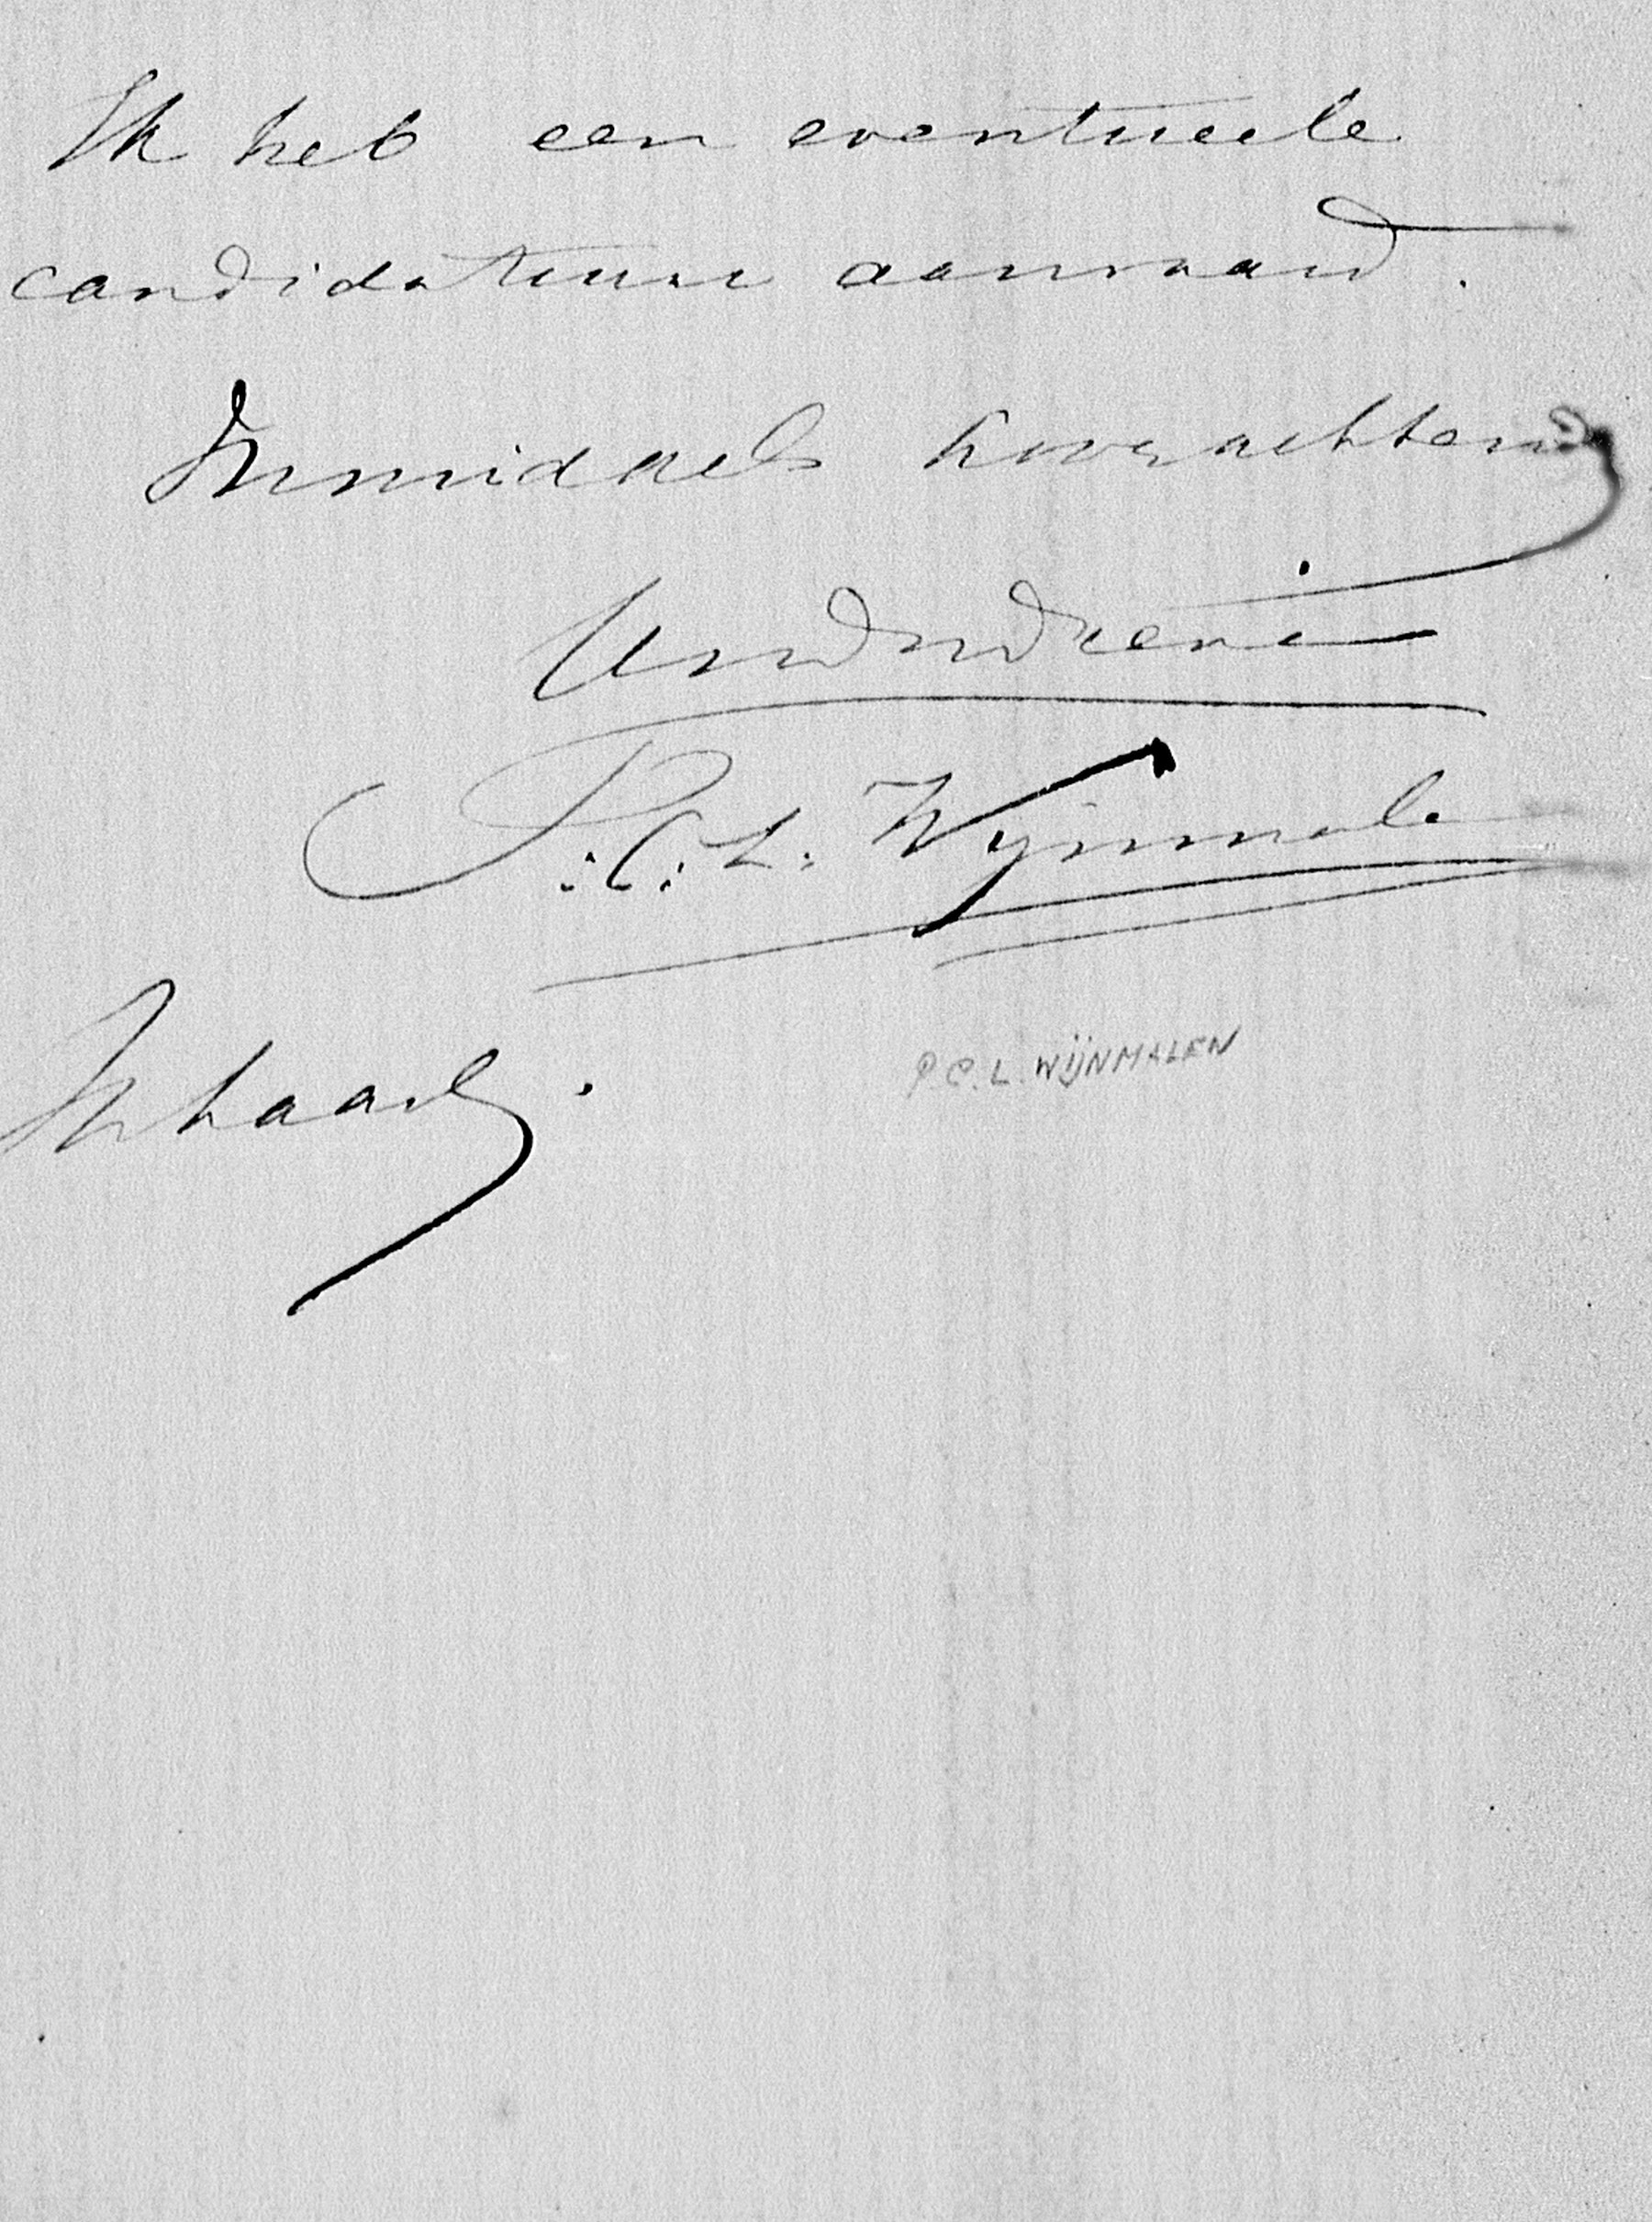 Ik heb een eventueele
candidatuur aanvaard.
Inmiddels hoogachtend
Uw dw dienr
P.C.L. Wijnmalen
In haast.
P.C.L. WIJNMALEN